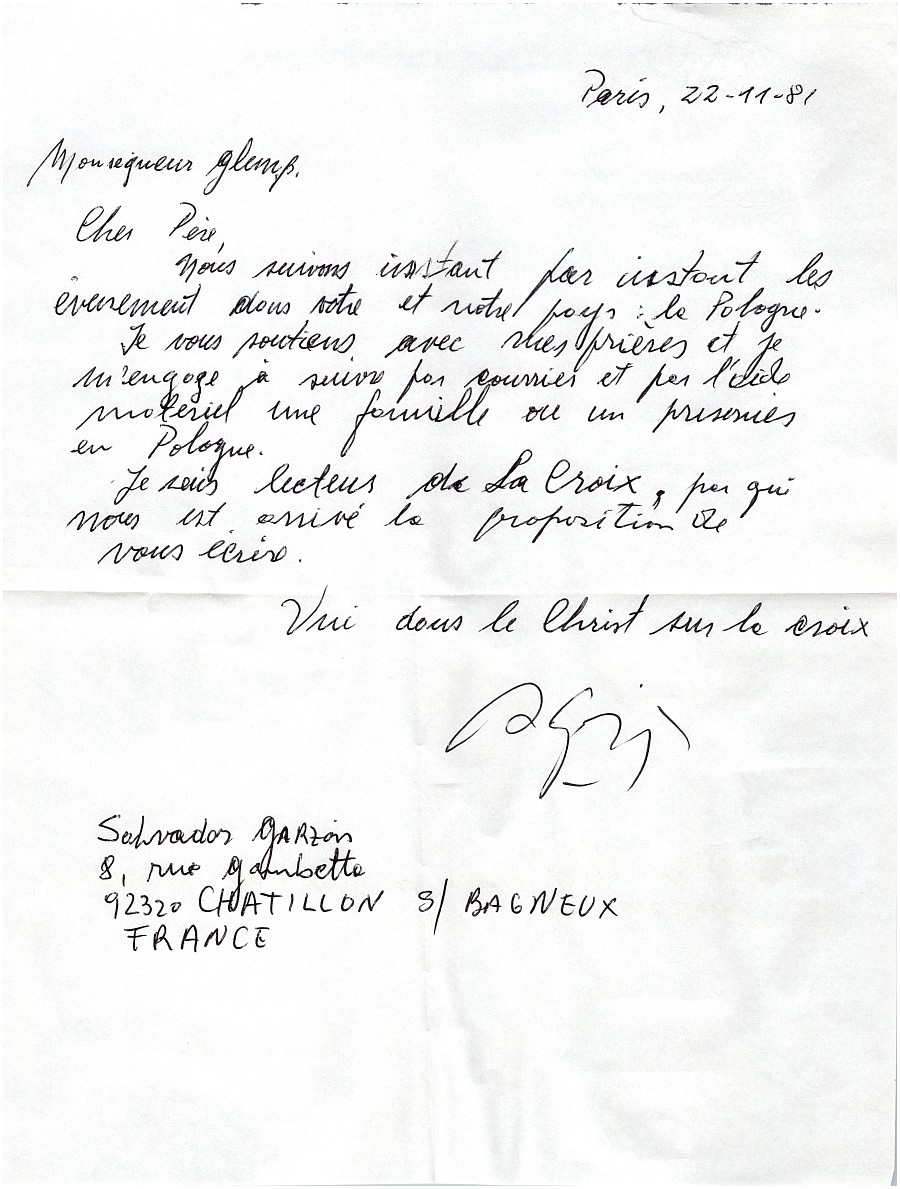 Paris, 22-11-81
Monseigneur Glemp.
Cher Père,
Nous suivons instant par instant les
évenement dans votre et notre pays : la Pologne.
Je vous soutiens avec mes prières et je
m'engage à suivre par courrier et par l'aide
matériel une famille ou un prisonier
en Pologne.
Je suis lecteur de La Croix, par qui
nous est arrivé la proposition de
vous écrire.
Uni dans le Christ sur la croix
Salvador GARZON
8, rue Gambetta
92320 CHATILLON S/ BAGNEUX
FRANCE